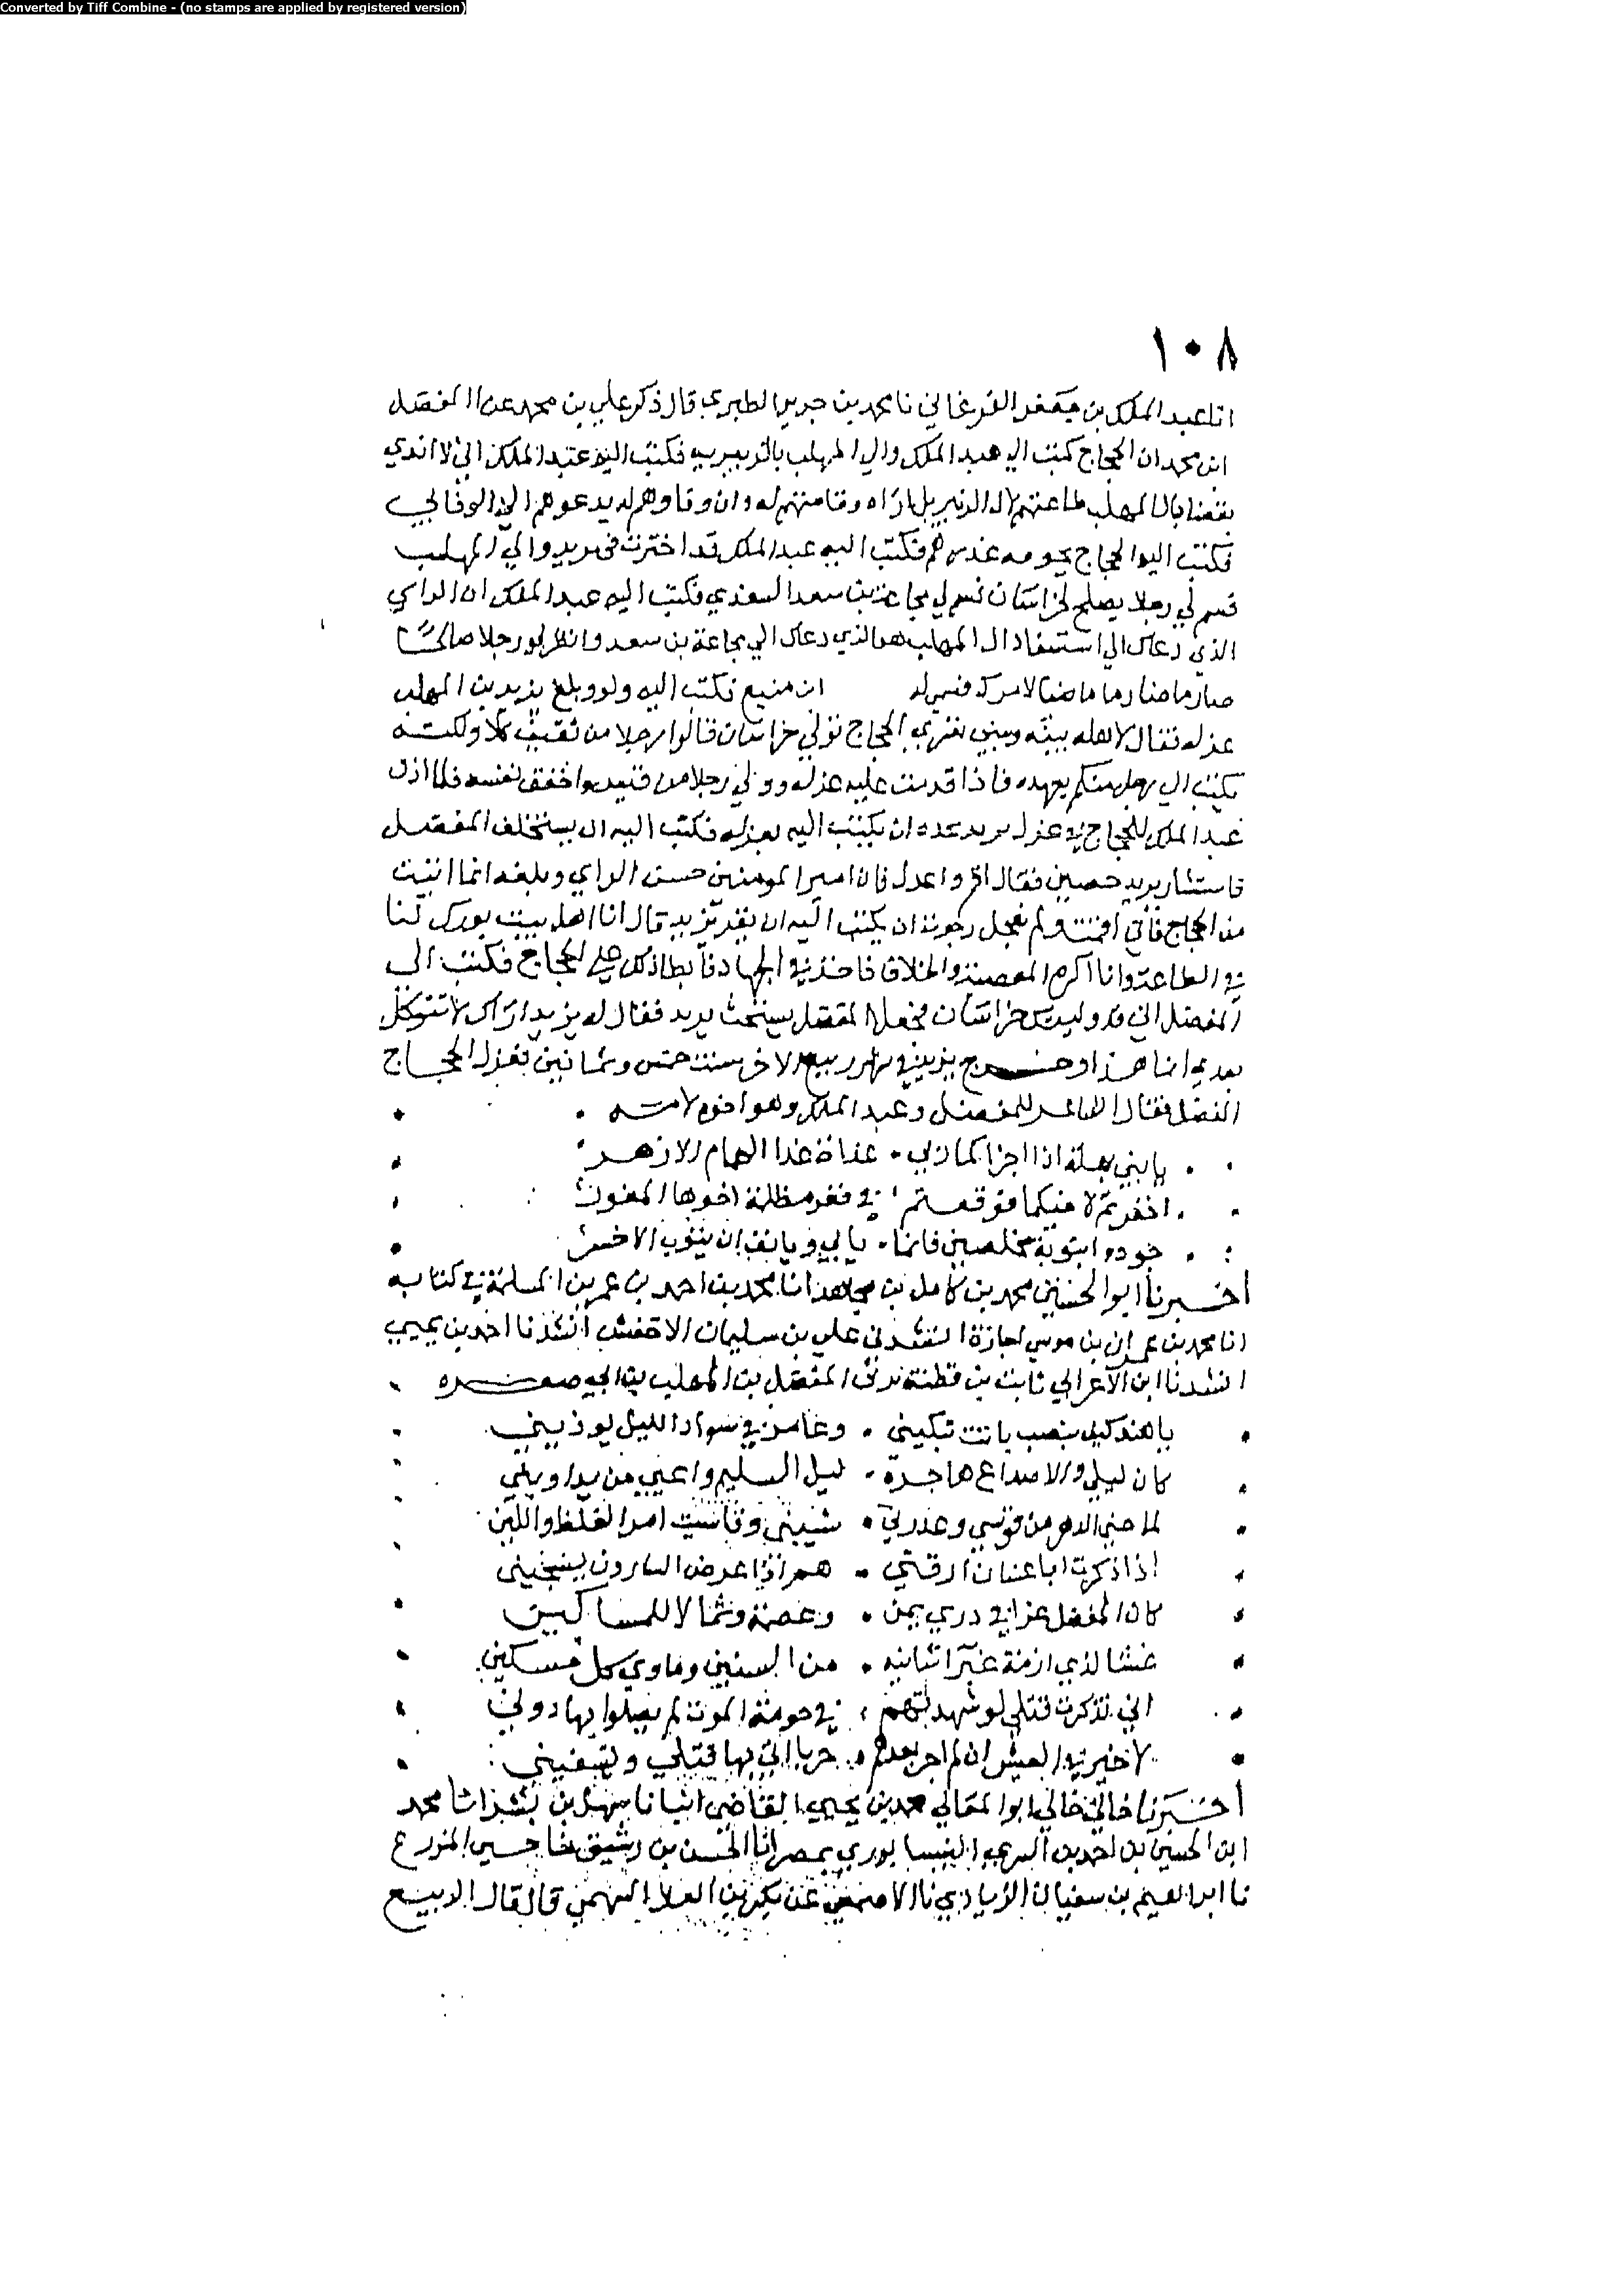 Converted by Tiff Combine - (no stamps are applied by registered version)
١٠٨
انا عبد الملك بن جعفر الفرغاني نا محمد بن جرير الطبري قال ذكر علي بن محمد عن المفضل
ابن محمد ان الحجاج كتب الى عبد الملك وال المهلب بالزبيرية فكتب اليه عبد الملك اني لا ارى
نقصا بال المهلب طاعتهم لال الزبير بل اراه وفا منهم له وان وفاوهم له يدعوهم الى الوفا لي
فكتب اليه الحجاج يخوفه غدرهم فكتب اليه عبد الملك قد اكثرت في يزيد وال المهلب
فسم لي رجلا يصلح لخراسان فسمى لي مجاعة بن سعد السعدي فكتب اليه عبد الملك ان الراي
الذي دعاك الى استفساد ال المهلب هو الذي دعاك الى مجاعة بن سعد وانظر لي رجلا صالحا
صارما ماضيا لامرك فسمى له ابن منيع فكتب اليه وله وبلغ يزيد بن المهلب
عزله فقال لاهل بيته من ترى الحجاج تولي خراسان قالوا رجلا من ثقيف كلا ولكنه
يكتب الى رجل منكم بعهده فاذا قدمت عليه عزله وولى رجلا من قيس فلما اذن
عبد الملك للحجاج في عزل يزيد كره ان يكتب اليه بعزله فكتب اليه ان يستخلف المفضل
فاستشار يزيد حصين فقال اقم واعتل فان امير المومنين حسن الراي وانما اتيت
من الحجاج فان اقمت ولم تعجل رجوت ان يكتب اليه ان يقر يزيد قال انا اهل بيت بورك لنا
في الطاعة وانا اكره المعصية والخلاف فاخذ في الجهاز فابطا ذلك على الحجاج فكتب الى
المفضل اني قد وليتك خراسان فجعل المفضل يستحث يزيد فقال له يزيد ان الحجاج لا يقرك
بعدي وخرج يزيد في شهر ربيع الاخر سنة خمس وثمانين فعزل الحجاج
المفضل فقال الشاعر للمفضل وعبد الملك وهو اخوه لامه
يا ابني بهلة انما اخزاكما ربي غداة غدا الهمام الازهر
احفرتم لاخيكم فوقعتم في قعر مظلمة اخوها المعور
جودوا بتوبة مخلصين فانما يابى ويانف ان يتوب الاخسر
اخبرنا ابو الحسين محمد بن كامل بن مجاهد انا محمد بن احمد بن عمر بن المسلمة في كتابه
انا محمد بن عمران بن موسى اجازة انشدني علي بن سليمان الاخفش انشدنا احمد بن يحيى
انشدنا ابن الاعرابي لثابت بن قطنة يرثي المفضل بن المهلب بن ابي صفرة
يا هند كيف بنصب بات يبكيني وعاير في سواد الليل يوذيني
كان ليلي والاصداء هاجدة ليل السليم واعيى من يداويني
لما حنى الدهر من قوسي وعذرني شيبي وقاسيت امر الغلظ واللين
اذا ذكرت ابا غسان ارقني هم اذا عرض السارون يشجيني
كان المفضل عزا في ذرى يمن وعصمة وثمالا للمساكين
غيثا لذي ازمة غبرا شاتية من السنين وماوى كل مسكين
اني تذكرت قتلى لو شهدتهم في حومة الموت لم يصلوا بها دوني
لا خير في العيش ان لم اجن بعدهم حربا ابي بها قتلي وتشفيني
اخبرنا خالي ابو المعالي محمد بن يحيى القاضي انبانا سهل بن بشر انا محمد
ابن الحسين بن احمد بن السري النيسابوري بمصر انا الحسن بن رشيق المورع
نا ابراهيم بن سفيان الزيادي نا الاصمعي عن بكر بن العلاء قال قال الربيع